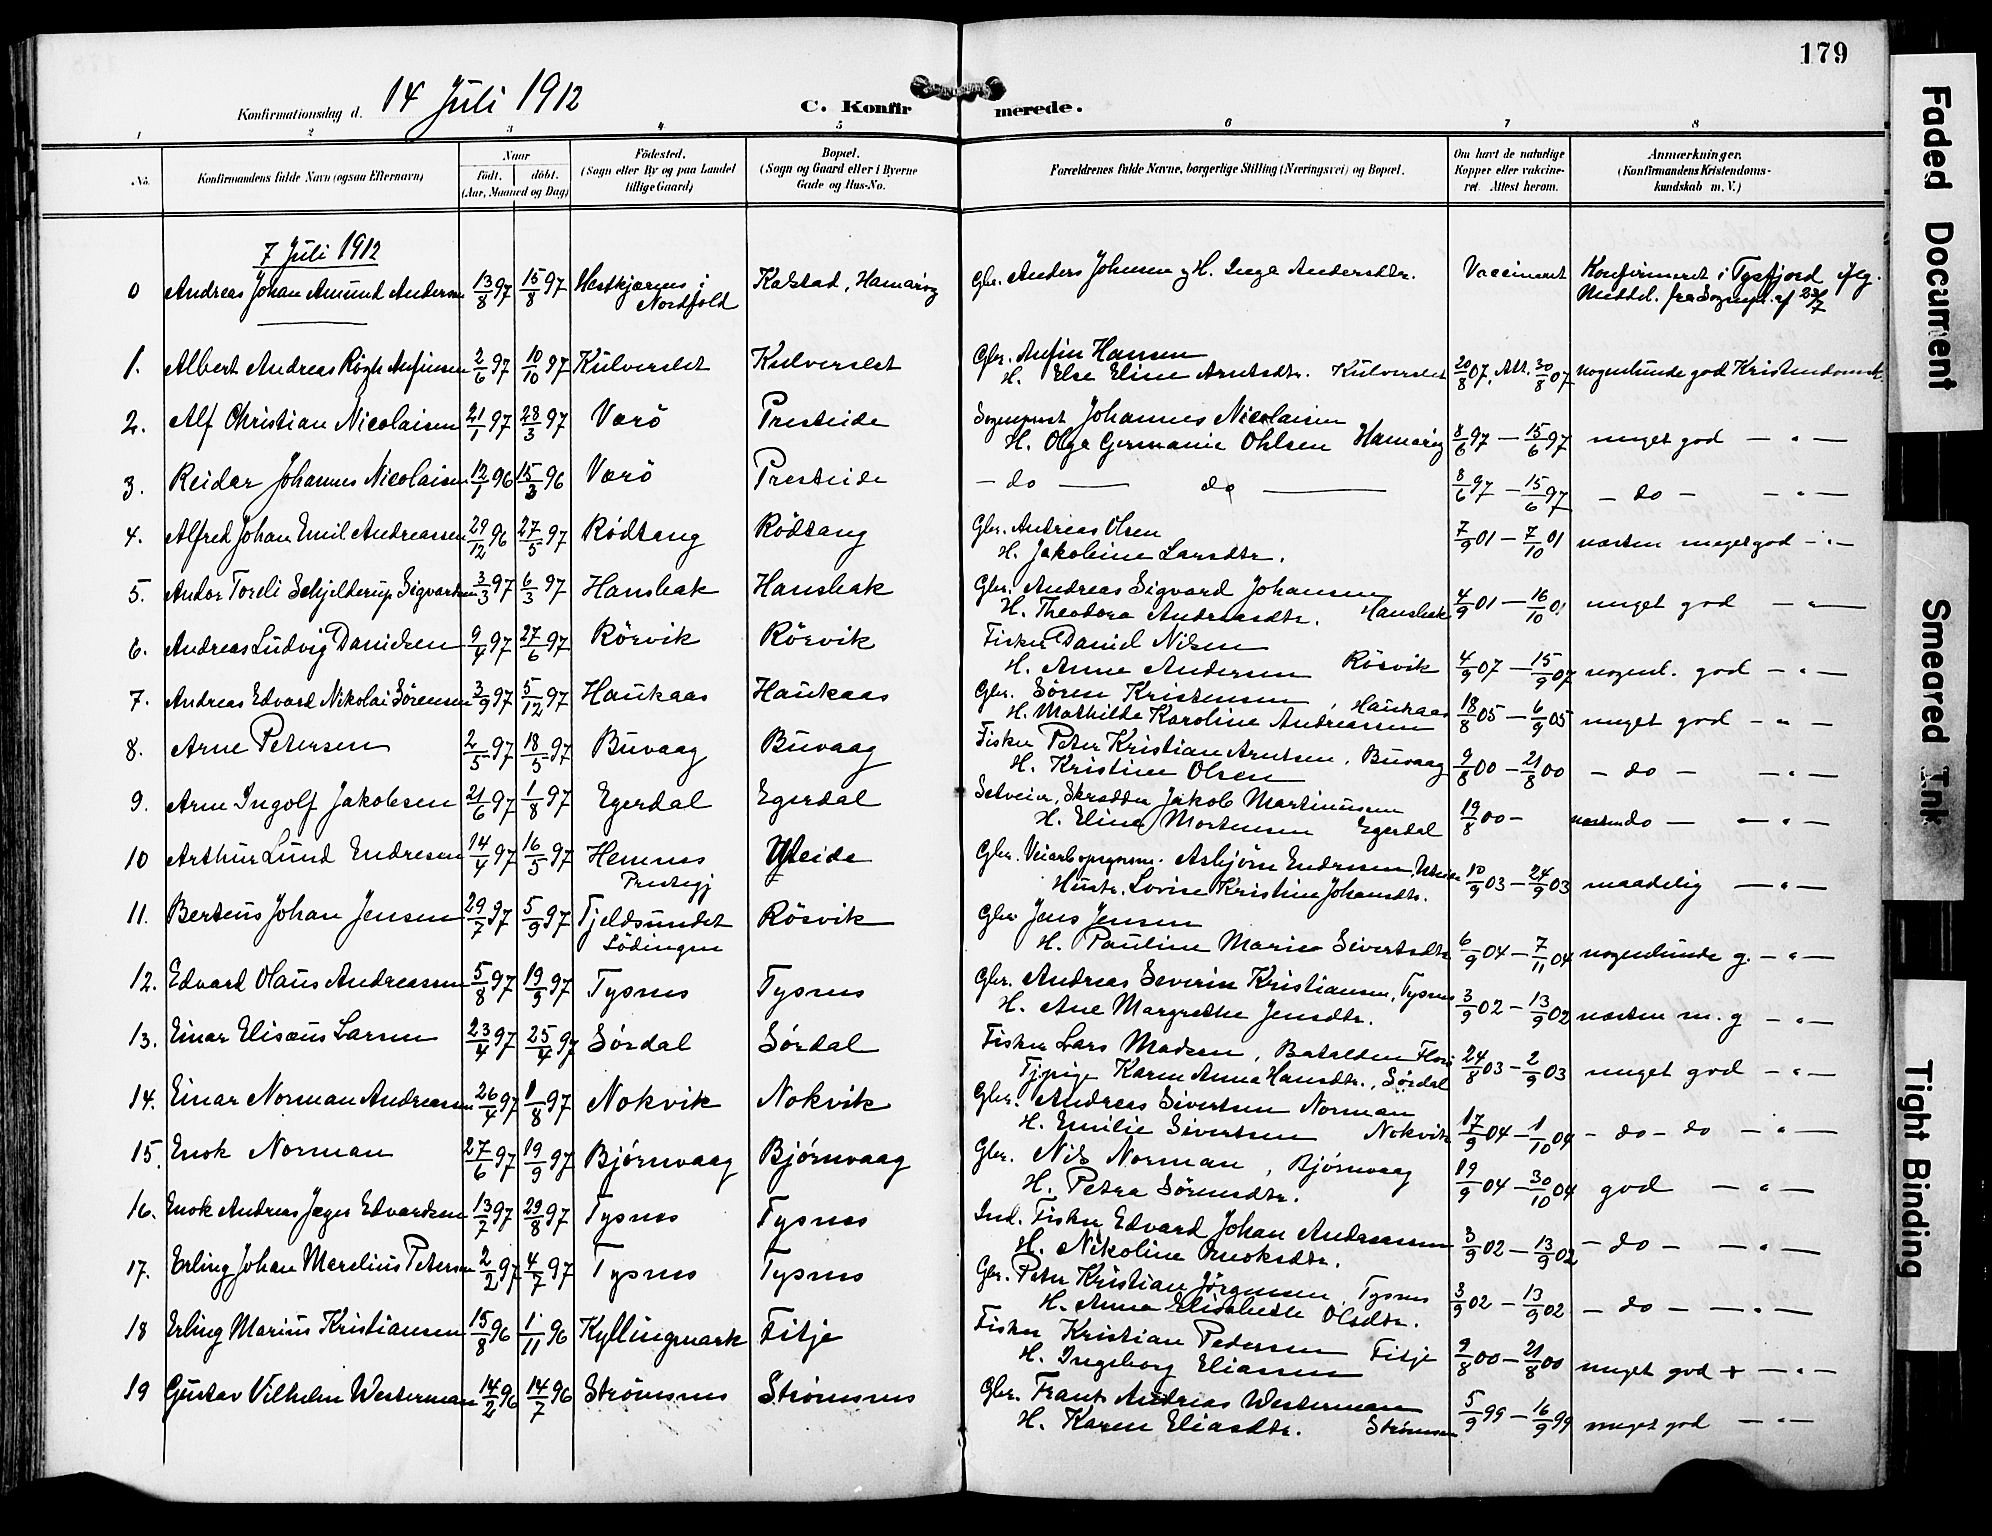 179
Konfirmationsdag d. 14 Juli 1912
C. Konfirmerede.
1 2 3 4 5 6 7 8
No. Konfirmandens fulde Navn (ogsaa Efternavn) Naar födt. döbt. (Aar, Maaned og Dag) Födested. (Sogn eller By og paa Landet tillige Gaard) Bopæl. (Sogn og Gaard eller i Byerne Gade og Hus-No. Forældrenes fulde Navne, borgerlige Stilling (Næringsvei) og Bopæl. Om havt de naturlige Kopper eller vakcineret. Attest herom. Anmærkninger. (Konfirmandens Kristendomskundskab m. V.)
7 Juli 1912
0 Andreas Johan Amund Andersen 13/8 97 15/8 97 i Nordfold Kalstad, Hamarøy Gbr. Anders Johnsen og H. Inga Andersdtr. Vaccineret Konfirmeret i Tysfjord iflg. Meddel. fra Sognepr. af
1. Albert Andreas Røgh Anfinsen 2/6 97 10/10 97 Kulverslet Kulverslet Gbr. Anfin Hansen
H. Else Eline Arntsdtr. Kulverslet 20/8 07. Att. 30/8 07 nogenlunde god Kristendomsk.
2. Alf Christian Nicolaisen 21/1 97 28/3 97 Værö Presteide Sogneprest Johannes Nicolaisen
H. Olga Germanie Ohlsen Hamarøy 8/6 97 — 15/6 97 meget god — " —
3. Reidar Johannes Nicolaisen 12/1 96 15/3 96 Værö Presteide — do — do — 8/6 97 — 15/6 97 — do — — " —
4. Alfred Johan Emil Andreassen 29/12 96 27/5 97 Rödtang Rödtang Gbr. Andreas Olsen
H. Jakobine Larsdtr. 7/9 01 — 7/10 01 næsten meget god — " —
5. Andor Toreli Schjelderup Sigvartsen 3/3 97 6/3 97 Hansbak Hansbak Gbr. Andreas Sigvard Johansen
H. Theodora Andreasdtr. Hansbak 4/9 01 — 16/10 01 meget god — " —
6. Andreas Ludvig Danielsen 9/4 97 27/6 97 Rörvik Rörvik Fisker Daniel Nilsen
H. Anne Andersen Rösvik 4/9 07 — 15/9 07 nogenl. god — " —
7. Andreas Edvard Nikolai Sörensen 3/9 97 5/12 97 Haukaas Haukaas Gbr. Sören Kristensen, Haukaas
H. Mathilde Karoline Andreassen 18/8 05 — 6/9 05 meget god — " —
8. Arne Petersen 2/5 97 18/5 97 Buvaag Buvaag Fisker Peter Kristian Arntsen, Buvaag
H. Kristine Olsen 9/8 00 — 21/8 00 — do — — " —
9. Arne Ingolf Jakobsen 21/6 97 1/8 97 Egerdal Egerdal Selveier, Skrædder Jakob Martinussen
H. Eline Mortensen Egerdal 19/8 00 — næsten do — — " —
10 Arthur Lund Endresen 14/4 97 16/5 97 Hemnes Prestegj Gbr. Asbjörn Endresen,
Hustr. Lovise Kristine Johansdtr. 10/9 03 — 24/9 03 maadelig — " —
11. Berteus Johan Jensen 29/7 97 5/9 97 Tjeldsundet Lödingen Rösvik Gbr Jens Jensen
H. Pauline Marie Sivertsdtr 6/9 04 — 7/11 04 nogenlunde g. — " —
12. Edvard Olaus Andreassen 5/8 97 19/9 97 Tysnes Tysnes Gbr. Andreas Severin Kristiansen, Tysnes
H. Ane Margrethe Jensdtr. 3/9 02 — 13/9 02 næsten m. g — " —
13. Einar Elisæus Larsen 23/4 97 25/4 97 Sördal Sördal Fisker Lars Madsen, Batalden Florö
Tjpige Karen Anna Hansdtr., Sördal 24/8 03 — 2/9 03 meget god — " —
14. Einar Norman Andreassen 26/4 97 1/8 97 Nokvik Nokvik Gbr. Andreas Sivertsen Norman
H. Emilie Sivertsen Nokvik 17/9 04 — 1/10 04 — do — do — " —
15. Enok Norman 27/6 97 19/9 97 Bjørnvaag Bjørnvaag Gbr. Nils Norman, Bjørnvaag
H. Petra Sörensdtr. 19/9 04 — 30/10 04 god — " —
16. Enok Andreas Jæger Edvardsen 13/7 97 29/8 97 Tysnes Tysnes Ind. Fisker Edvard Johan Andreassen
H. Nikoline Enoksdtr. 3/9 02 — 13/9 02 — do — — " —
17. Erling Johan Marelius Petersen 2/2 97 4/7 97 Tysnes Tysnes Gbr. Peter Kristian Jörgensen, Tysnes
H. Anna Elisabeth Olsdtr. 3/9 02 — 13/9 02 — do — — " —
18 Erling Marius Kristiansen 15/8 96 1/11 96 Kyllingmark Fitje Fisker Kristian Pedersen Fitje
H. Ingeborg Eliassen 9/8 00 — 21/8 00 meget god + — " —
19 Gustav Vilhelm Westerman 14/2 96 14/7 96 Strømsnes Strømsnes Gbr. Frants Andreas Westerman
H. Karen Eliasdtr. Strømsnes 5/9 99 — 16/9 99 meget god — " —
Faded Document
Smeared Ink
Tight Binding